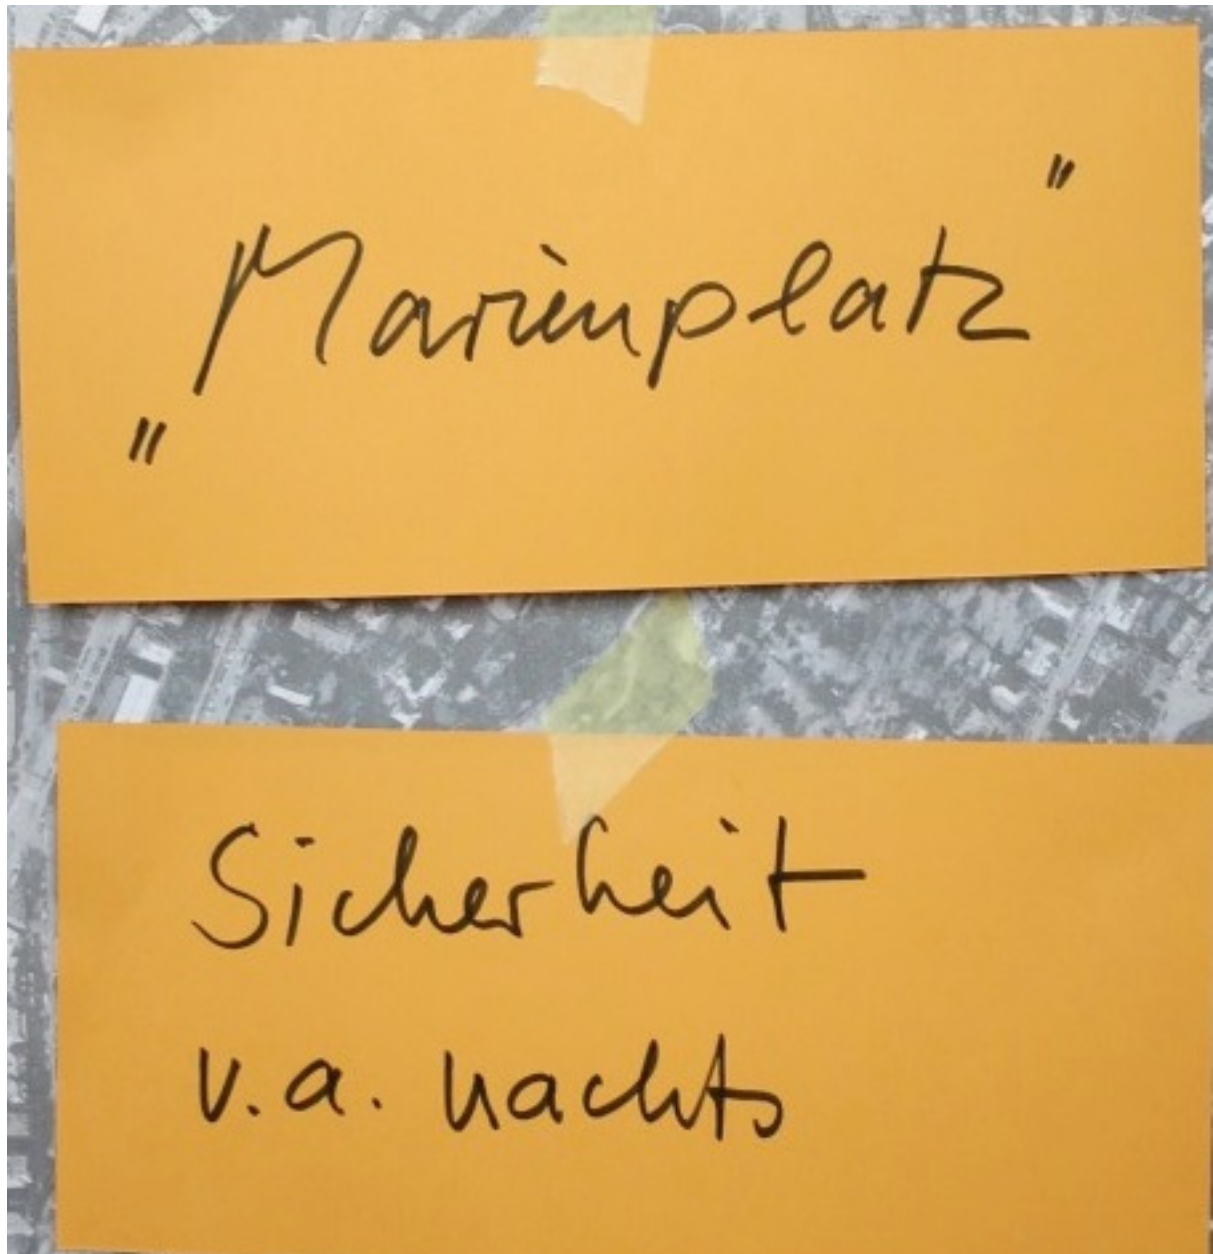 "Marienplatz"
Sicherheit
v.a. nachts